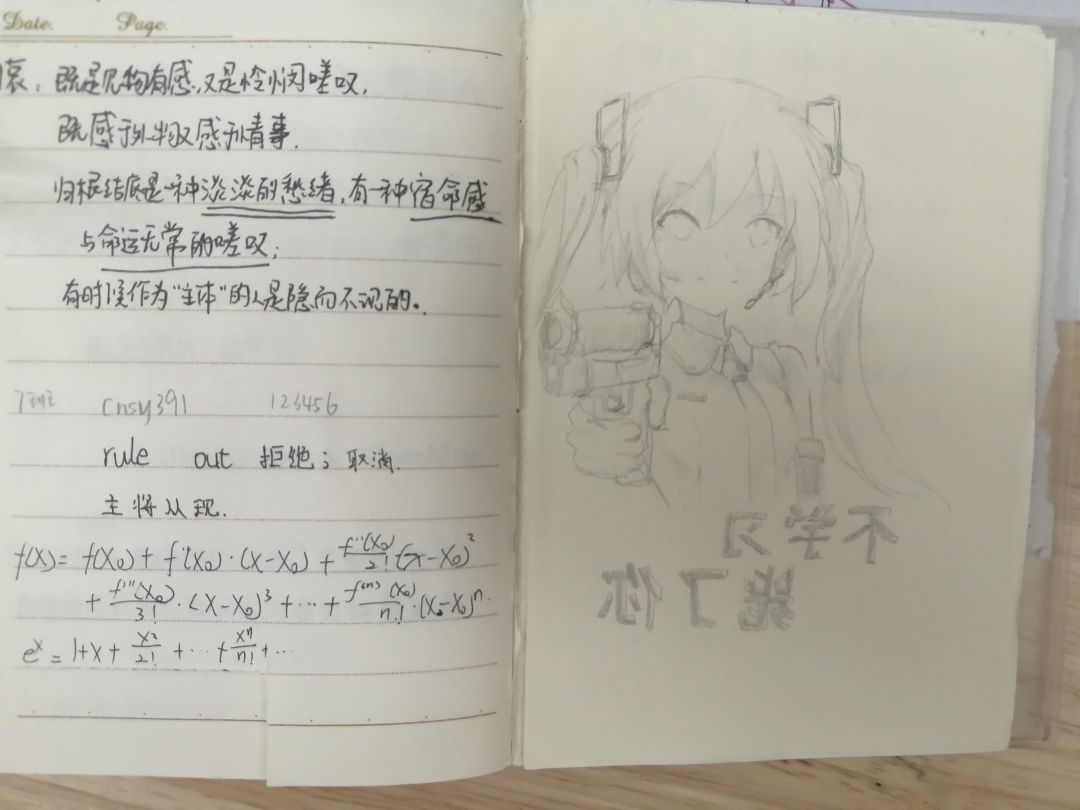 Date. Page.
哀：既是见物有感，又是怜悯嗟叹，
既感于外物又感于情事.
归根结底是一种淡淡的愁绪，有一种宿命感
与命运无常的嗟叹；
有时候作为“主体”的人是隐而不现的。
cnsy391 123456
rule out 拒绝；取消.
主将从现.
f(x)= f(x₀) + f'(x₀)·(x-x₀) + f''(x₀)/2! (x-x₀)²
+ f'''(x₀)/3! ·(x-x₀)³ + ··· + f⁽ⁿ⁾(x₀)/n! ·(x-x₀)ⁿ
eˣ = 1+x+ x²/2! + ··· + xⁿ/n! + ···
不学习
毙了你